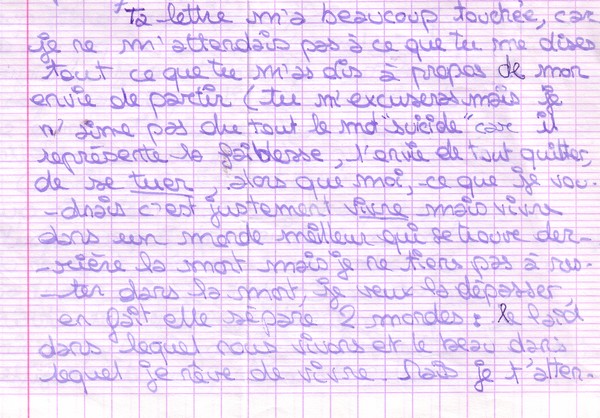 Ta lettre m'a beaucoup touchée, car
je ne m'attendais pas à ce que tu me dises
tout ce que tu m'as dis à propos de mon
envie de partir (tu m'excuseras mais je
n'aime pas du tout le mot "suicide" car il
représente la faiblesse, l'envie de tout quitter,
de se tuer, alors que moi, ce que je vou-
-drais c'est justement vivre mais vivre
dans un monde meilleur qui se trouve der-
-rière la mort mais je ne tiens pas à res-
-ter dans la mort, je veux la dépasser
en fait elle sépare 2 mondes : le laid
dans lequel nous vivons et le beau dans
lequel je rêve de vivre. Mais je t'atten-